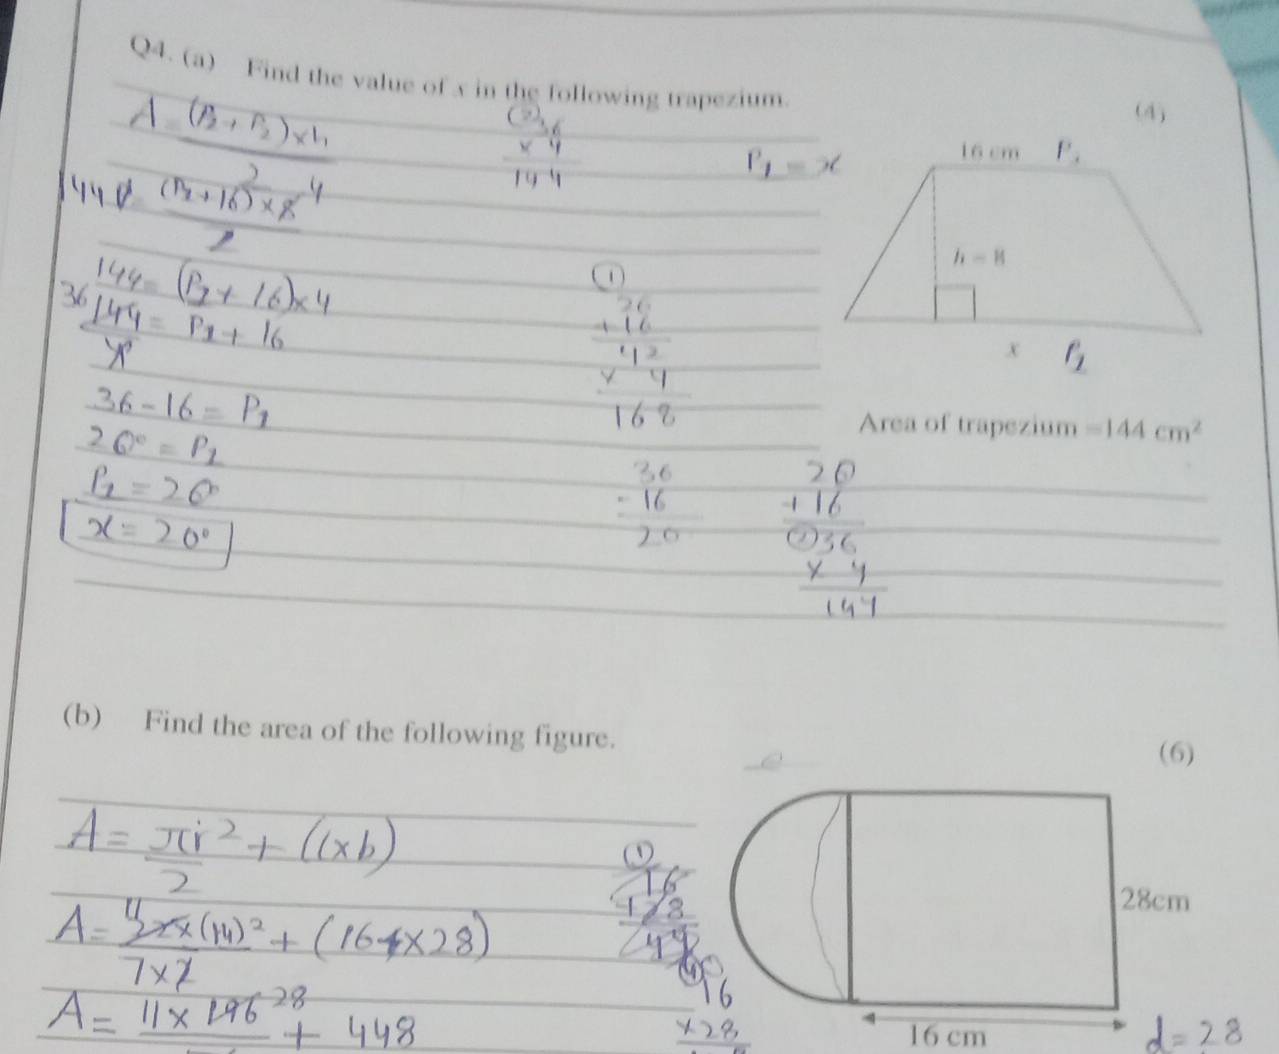 Q4. (a) Find the value of x in the following trapezium.
(4)
A = (P₂ + P₂) × h
2
144 = (P₂ + 16) × 8 4
2
144 = (P₂ + 16) × 4
36 144 = P₂ + 16
36 - 16 = P₂
20° = P₂
P₂ = 20
x = 20°
(2)
36
× 4
144
P₁ = x
①
26
+ 16
42
× 4
168
36
- 16
20
20
+ 16
②36
× 4
144
16 cm P₁
h = 8
x P₂
Area of trapezium = 144 cm²
(b) Find the area of the following figure.
(6)
A = πr² + (l×b)
2
A = × (14)² + (16 × 28)
7 × 2
A = 11 × 196 28 + 448
①
16
④
16
×28
28cm
16 cm
d = 28